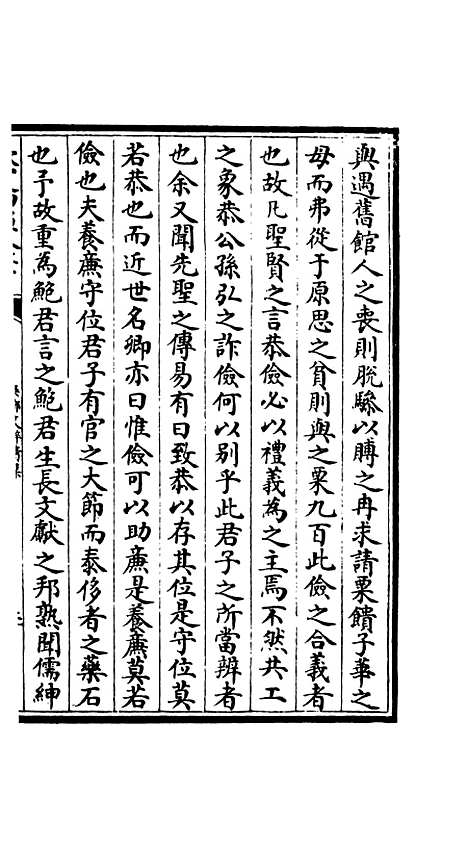 與遇舊館人之喪則脫驂以賻之冉求請粟饋子華之
母而弗從于原思之貧則與之粟九百此儉之合義者
也故凡聖賢之言恭儉必以禮義為之主焉不然共工
之象恭公孫弘之詐儉何以別乎此君子之所當辨者
也余又聞先聖之傳易有曰致恭以存其位是守位莫
若恭也而近世名卿亦曰惟儉可以助廉是養廉莫若
儉也夫養廉守位君子有官之大節而泰侈者之藥石
也予故重為鮑君言之鮑君生長文獻之邦熟聞儒紳